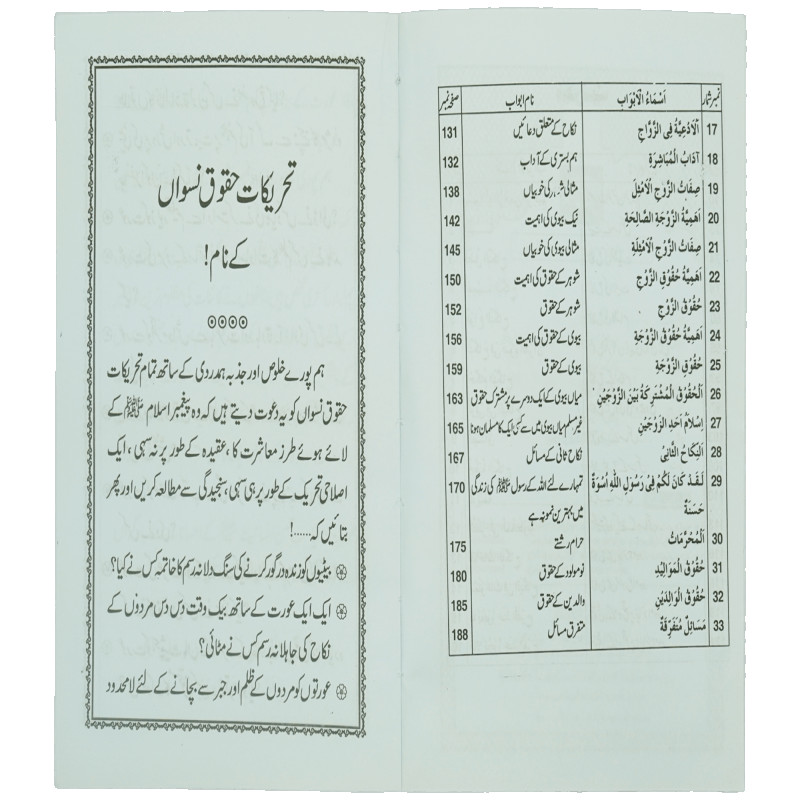 نمبر شمار | اَسْمَاءُ الْاَبْوَاب | نام ابواب | صفحہ نمبر
17 | اَلْاَدْعِيَةُ فِى الزَّوَاجِ | نکاح کے متعلق دعائیں | 131
18 | آدَابُ الْمُبَاشِرَةِ | ہم بستری کے آداب | 132
19 | صِفَاتُ الزَّوْجِ الْاَمْثَلِ | مثالی شوہر کی خوبیاں | 138
20 | اَهَمِّيَةُ الزَّوْجَةِ الصَّالِحَةِ | نیک بیوی کی اہمیت | 142
21 | صِفَاتُ الزَّوْجِ الْاَمْثِلَةِ | مثالی بیوی کی خوبیاں | 145
22 | اَهَمِّيَّةُ حُقُوْقِ الزَّوْجِ | شوہر کے حقوق کی اہمیت | 150
23 | حُقُوْقُ الزَّوْجِ | شوہر کے حقوق | 152
24 | اَهَمِّيَةُ حُقُوْقِ الزَّوْجَةِ | بیوی کے حقوق کی اہمیت | 156
25 | حُقُوْقُ الزَّوْجَةِ | بیوی کے حقوق | 159
26 | اَلْحُقُوْقُ الْمُشْتَرِكَةُ بَيْنَ الزَّوْجَيْنِ | میاں بیوی کے ایک دوسرے پر مشترک حقوق | 163
27 | اِسْلَامُ اَحَدِ الزَّوْجَيْنِ | غیر مسلم میاں بیوی میں سے کسی ایک کا مسلمان ہونا | 165
28 | اَلنِّكَاحُ الثَّانِىْ | نکاح ثانی کے مسائل | 167
29 | لَقَدْ كَانَ لَكُمْ فِىْ رَسُوْلِ اللّٰهِ اُسْوَةٌ | تمہارے لئے اللہ کے رسول ﷺ کی زندگی | 170
حَسَنَةٌ | میں بہترین نمونہ ہے
30 | اَلْمُحَرَّمَاتُ | حرام رشتے | 175
31 | حُقُوْقُ الْمَوَالِيْدِ | نومولود کے حقوق | 180
32 | حُقُوْقُ الْوَالِدَيْنِ | والدین کے حقوق | 185
33 | مَسَائِلُ مُتَفَرِّقَةٌ | متفرق مسائل | 188
تحریکات حقوق نسواں
کے نام!
ہم پورے خلوص اور جذبہ ہمدردی کے ساتھ تمام تحریکات
حقوق نسواں کو یہ دعوت دیتے ہیں کہ وہ پیغمبر اسلام ﷺ کے
لائے ہوئے طرز معاشرت کا، عقیدہ کے طور پر نہ سہی، ایک
اصلاحی تحریک کے طور پر ہی سہی، سنجیدگی سے مطالعہ کریں اور پھر
بتائیں کہ......!
بیٹیوں کو زندہ درگور کرنے کی سنگ دلانہ رسم کا خاتمہ کس نے کیا؟
ایک ایک عورت کے ساتھ بیک وقت دس دس مردوں کے
نکاح کی جاہلانہ رسم کس نے مٹائی؟
عورتوں کو مردوں کے ظلم اور جبر سے بچانے کے لئے لا محدود